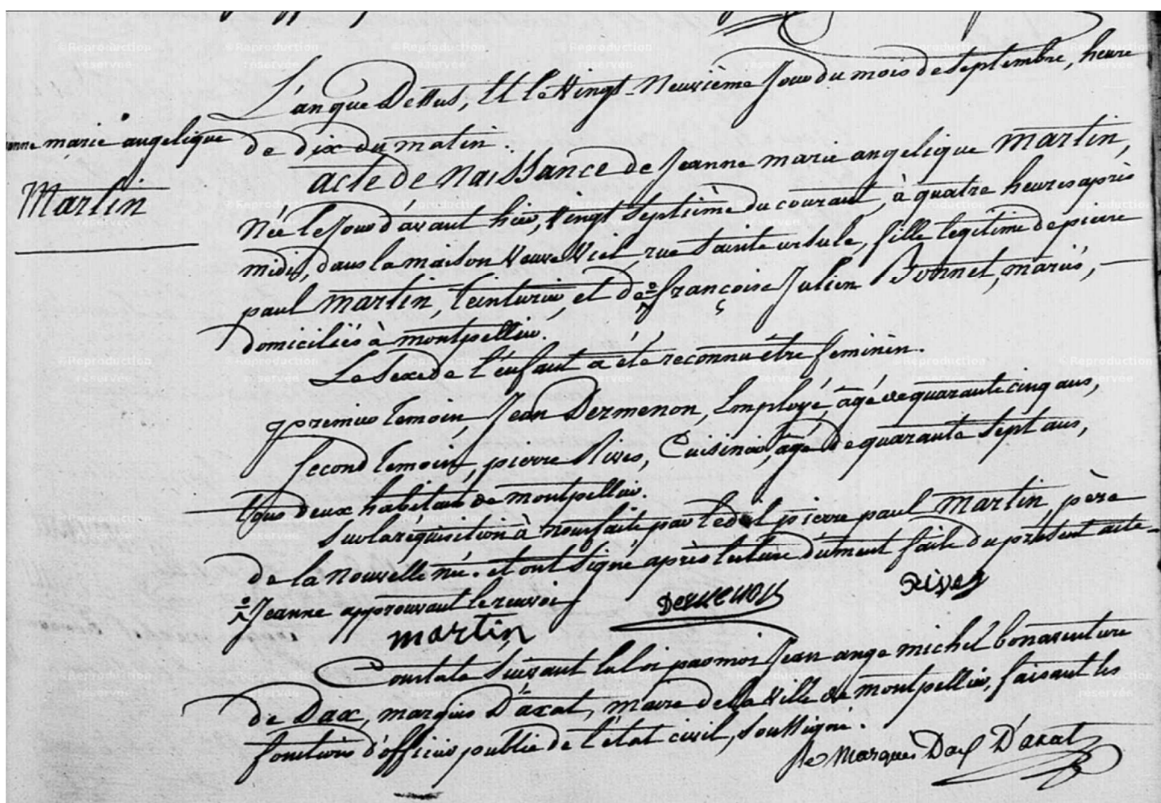 L'an que Dessus, Et le Vingt-Neuvième Jour du mois de Septembre, heure
de dix du matin.
anne marie angelique
Martin
acte de Naissance de Jeanne marie angelique Martin,
Née le Jour d'avant hier, vingt septième du courant, à quatre heures après
midi, dans la maison Veuve Viel, rue Sainte ursule, fille legitime de pierre
paul Martin, teinturier, et de françoise Julien Bonnet, mariés,
domiciliés à montpellier.
Le Sexe de l'enfant a été reconnu être feminin.
premier temoin, Jean Dermenon, Employé, agé de quarante cinq ans,
Second temoin, pierre Rives, Cuisinier, agé de quarante Sept ans,
tous deux habitans de montpellier.
Sur la réquisition à nous faite par led. pierre paul Martin, père
de la nouvelle née. et ont signé après lecture dument faite du présent acte
Jeanne approuvant le renvoi
Dermenon
Rives
martin
Constaté Suivant la loi par moi Jean ange michel bonaventure
de Dax, marquis D'axat, maire de la Ville de montpellier, faisant les
fonctions d'officier public de l'état civil, soussigné.
le Marquis Dax D'axat
©Reproduction réservée